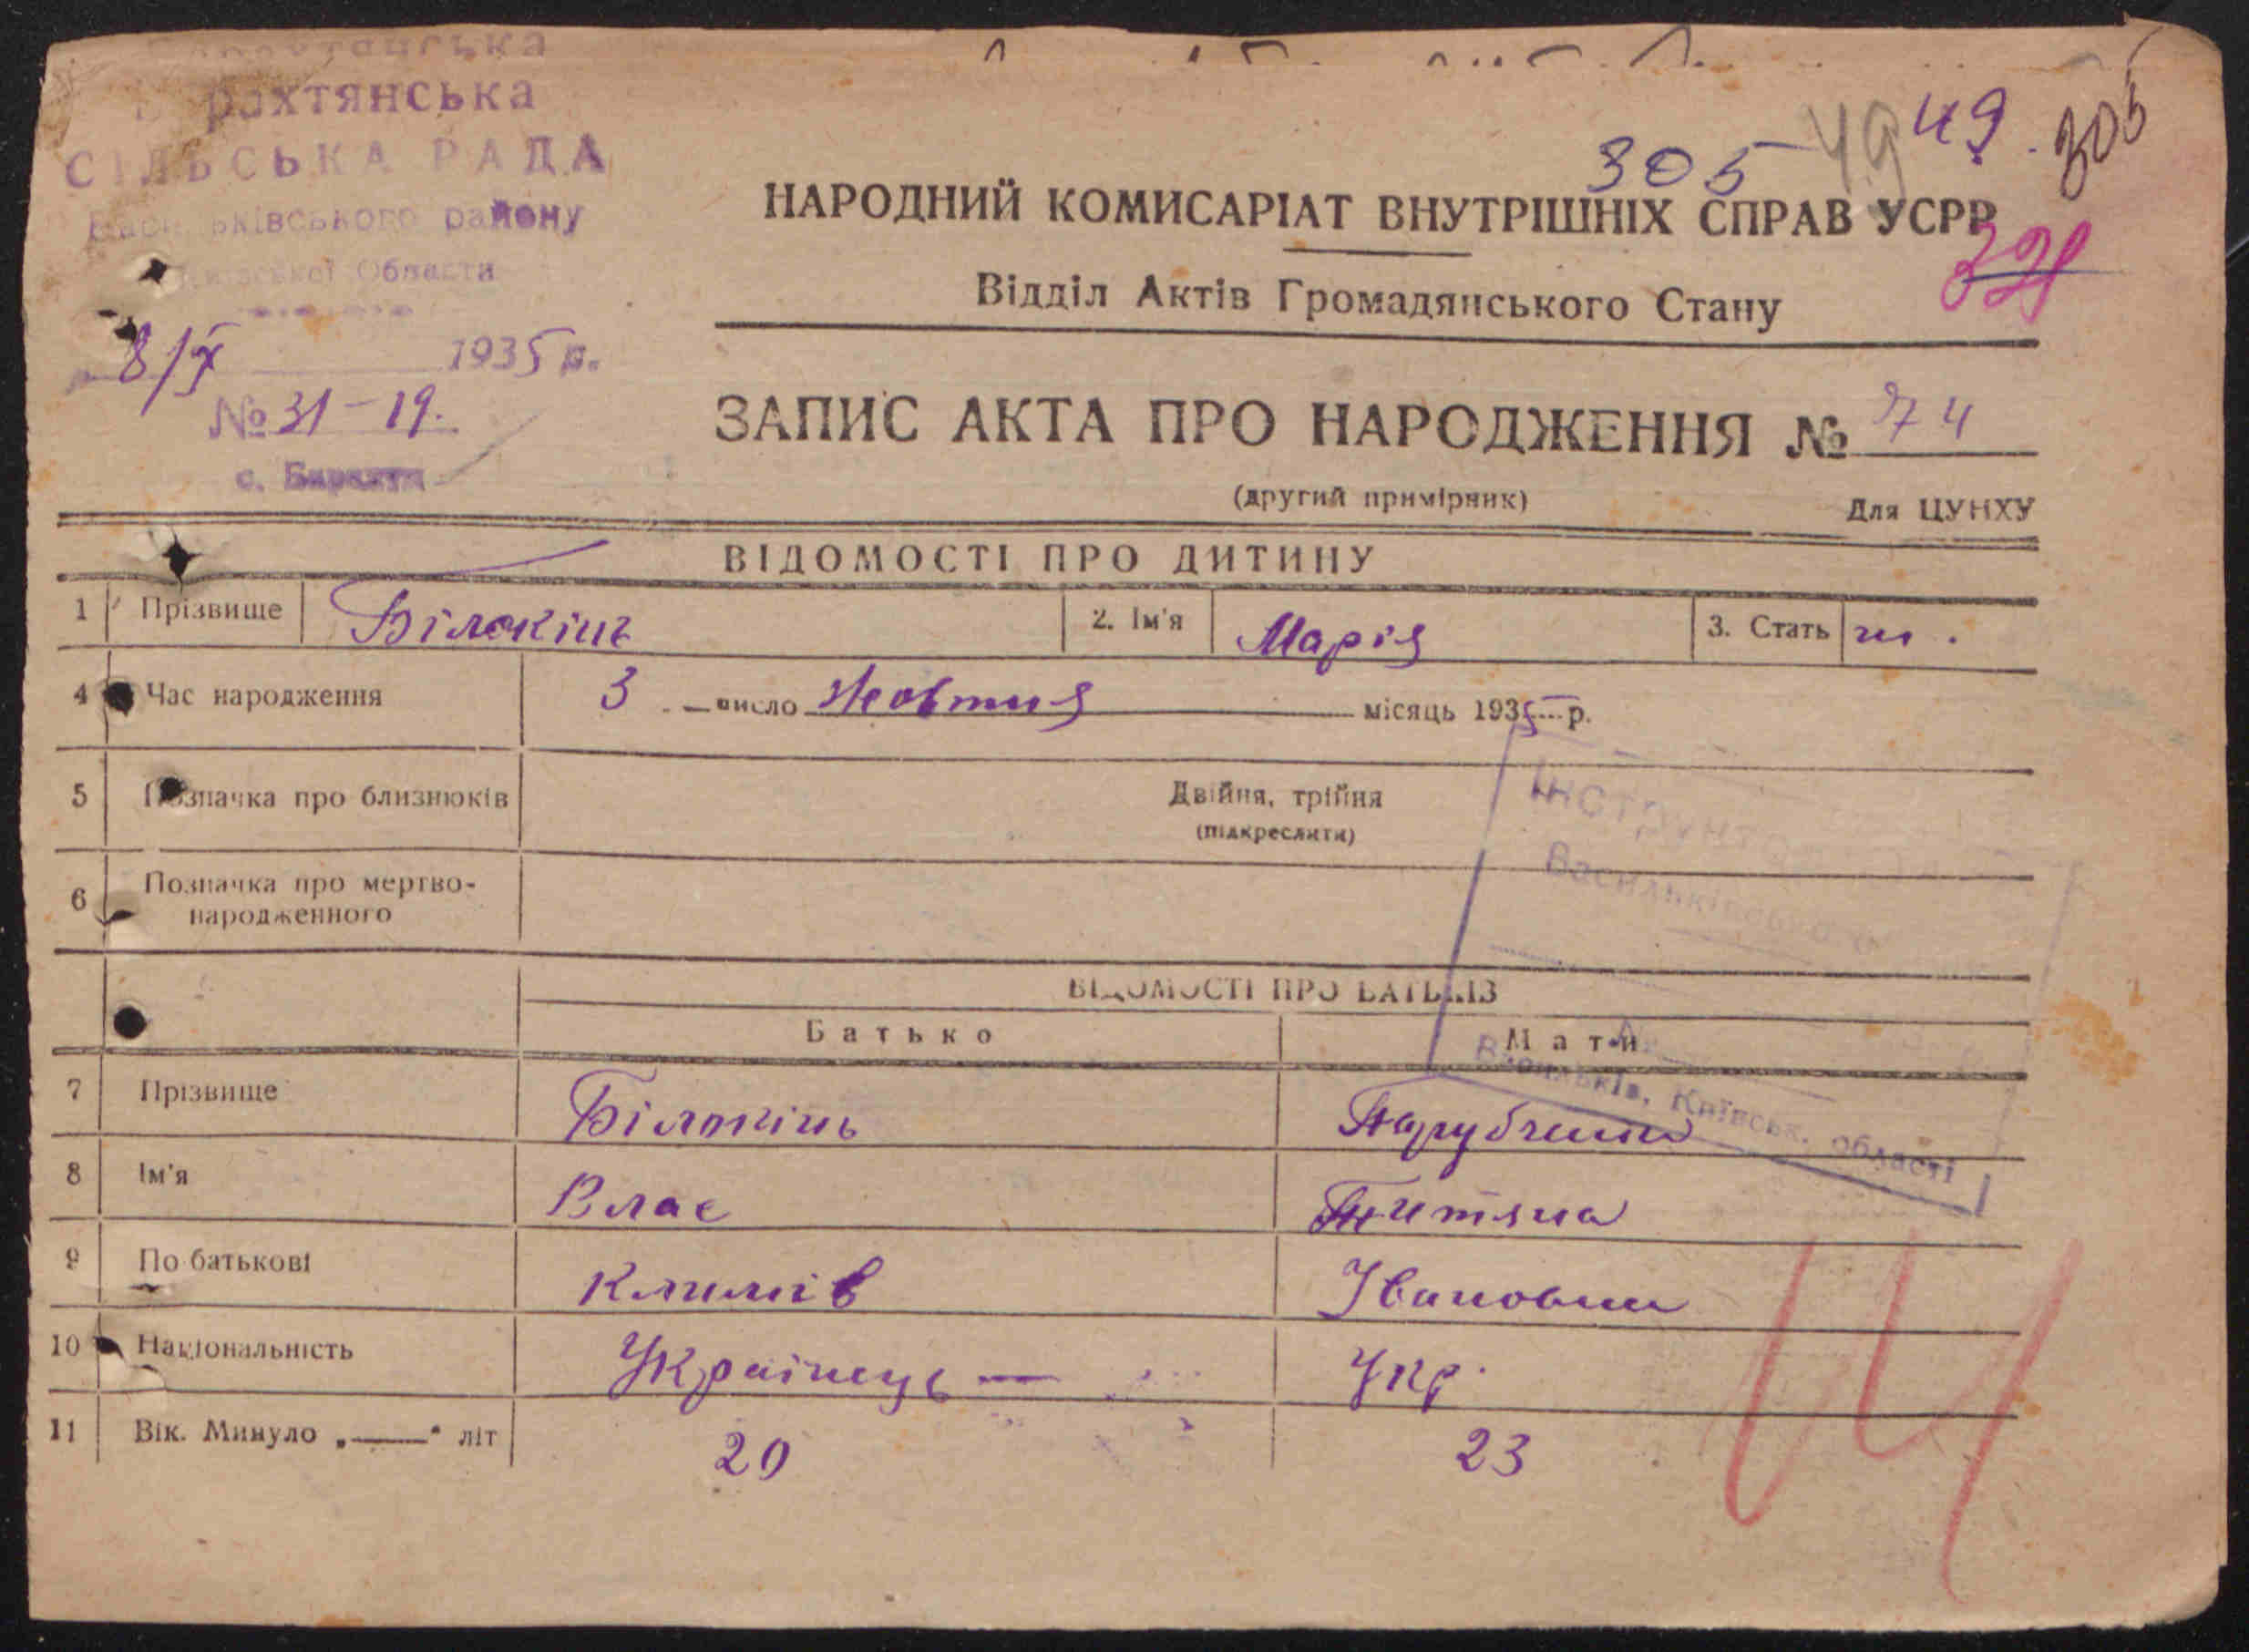 рахтянська
СІЛЬСЬКА РАДА
Васильківського району
Київської Области
8/X 1935 р.
№ 31-19.
с. Барахти
305 49 49. 305
НАРОДНИЙ КОМИСАРІАТ ВНУТРІШНІХ СПРАВ УСРР
Відділ Актів Громадянського Стану
ЗАПИС АКТА ПРО НАРОДЖЕННЯ № 74
(другий примірник) Для ЦУНХУ
ВІДОМОСТІ ПРО ДИТИНУ
1 Прізвище Білокінь 2. Ім'я Марія 3. Стать
4 Час народження 3 число Жовтня місяць 1935 р.
5 Позначка про близнюків Двійня, трійня
(підкреслити)
6 Позначка про мертво-
народженного
Інструктор
Васильківського
ВІДОМОСТІ ПРО БАТЬКІВ
Батько Мати
Васильків, Київськ. області
7 Прізвище Білокінь
8 Ім'я Влас Титяна
9 По батькові Климів Івановна
10 Національність Українець — Укр.
11 Вік. Минуло „——“ літ 20 23